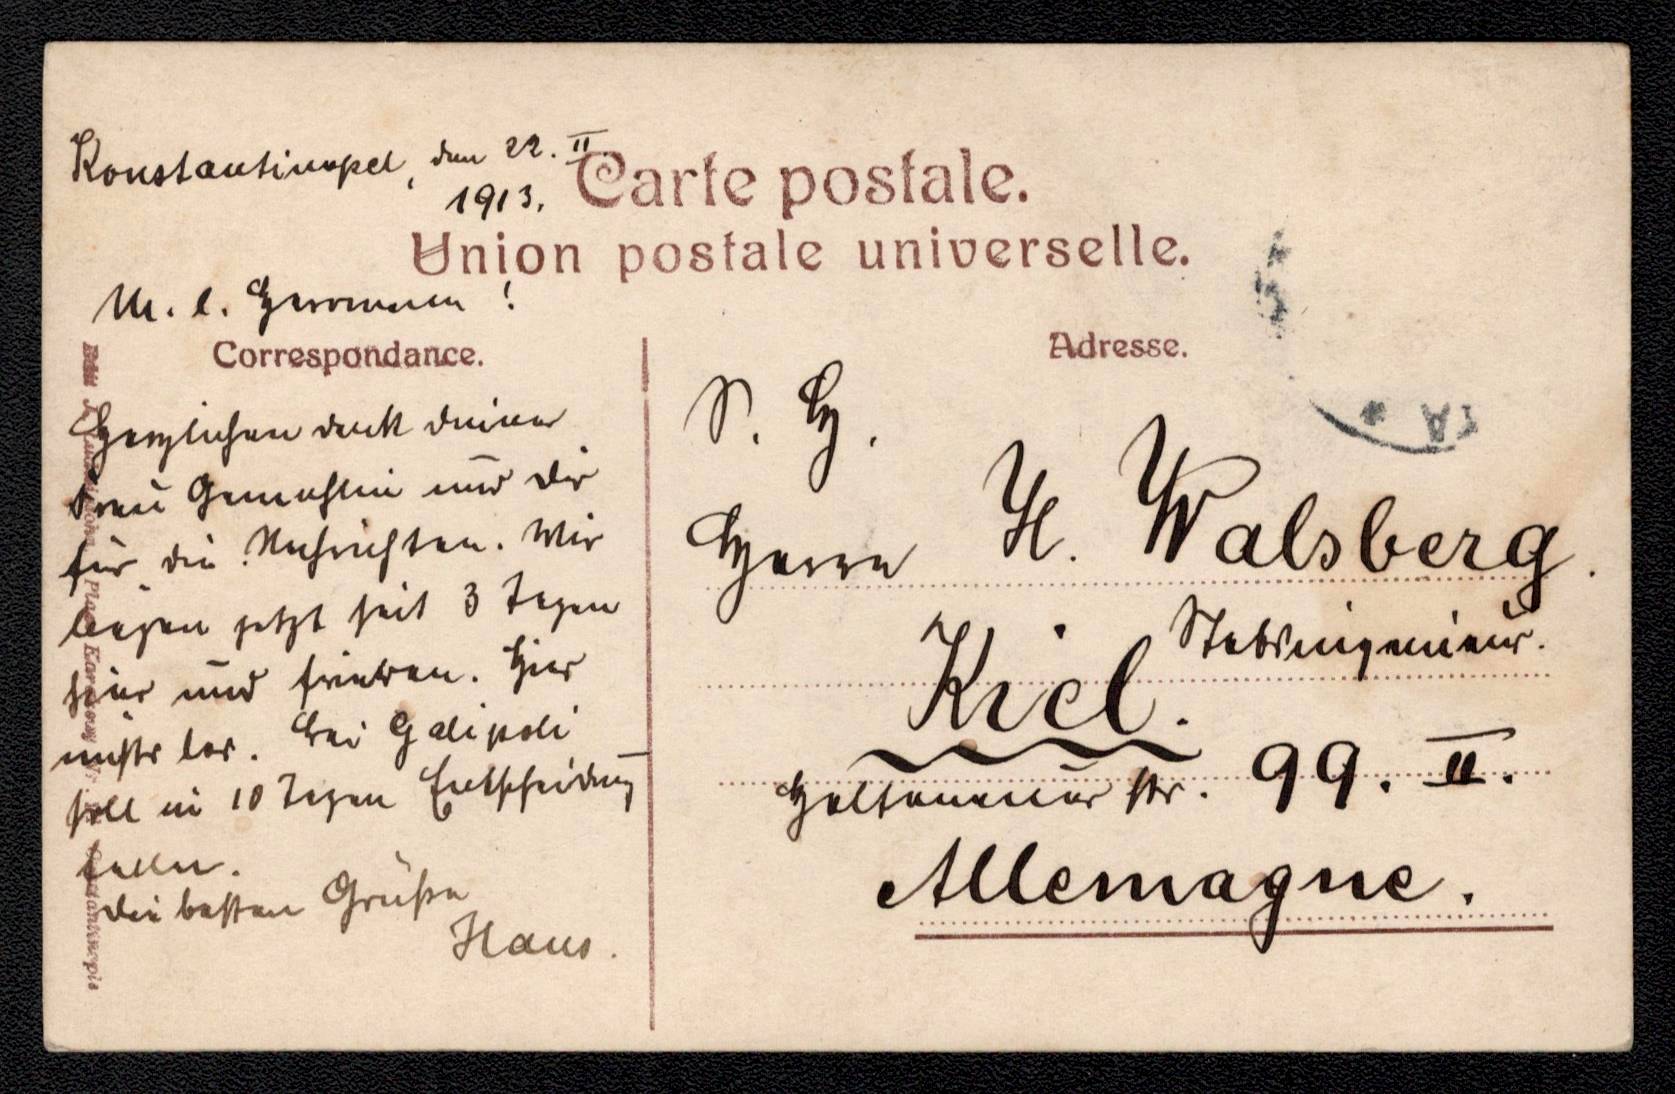 Konstantinopel, den 22. II.
1913.
Carte postale.
Union postale universelle.
M. l. Hermann!
Correspondance.
Adresse.
Herzlichen dank deiner
Frau Gemahlin und dir
für die Nachrichten. Wir
liegen jetzt seit 3 Tagen
hier und frieren. Hier
nichts los. Bei Galipoli
soll in 10 Tagen Entscheidung
fallen.
die besten Grüße
Hans.
S. H.
Herrn H. Walsberg.
Stabsingenieur.
Kiel.
Holtenauer str. 99. II.
Allemagne.
TA